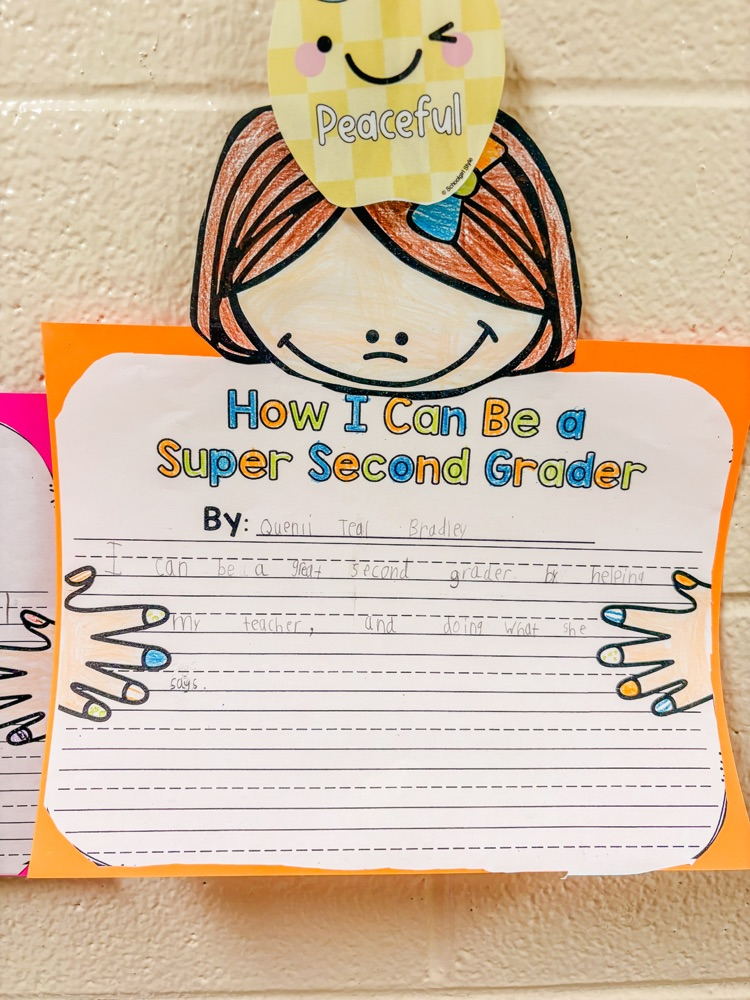 Peaceful
© Schoolgirl Style
How I Can Be a
Super Second Grader
By: Quenii Teal Bradley
I can be a great second grader by helping
my teacher, and doing what she
says.